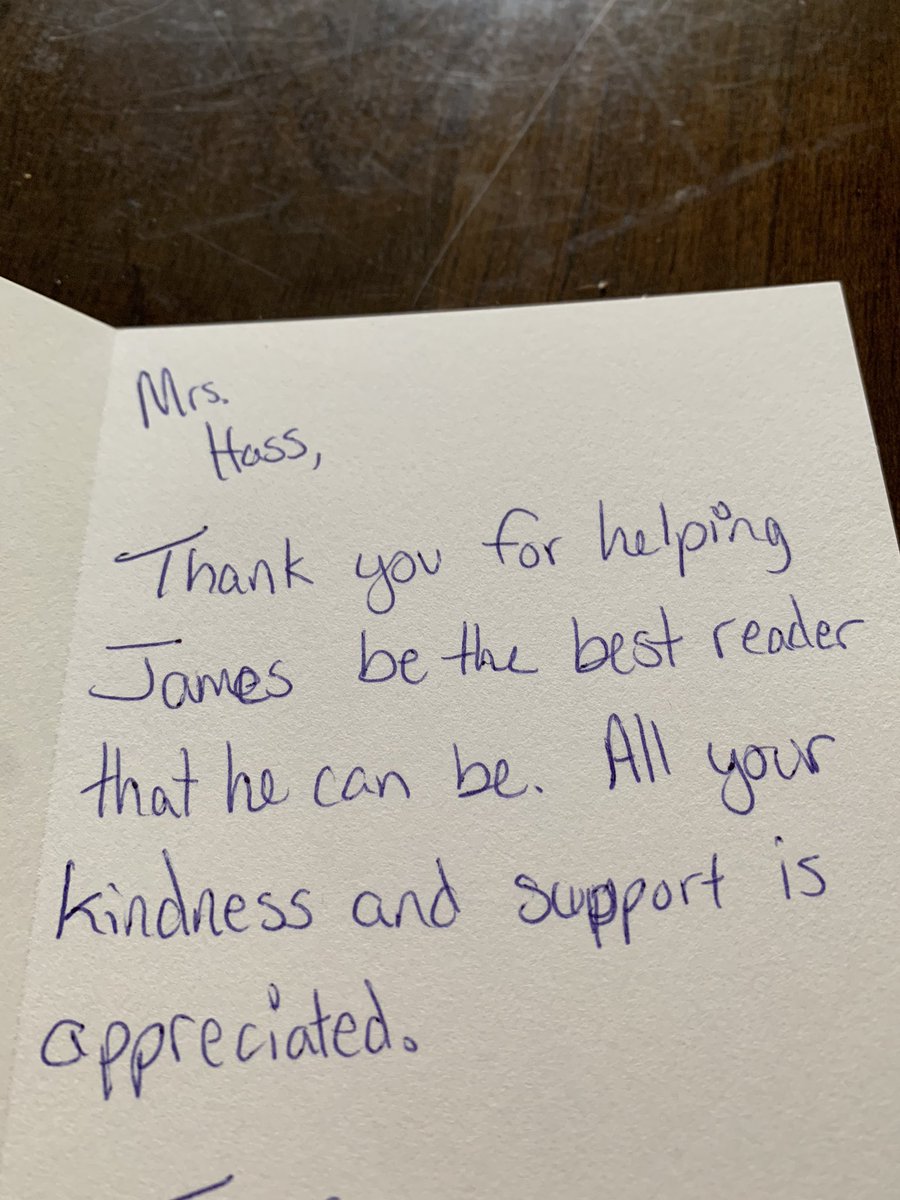 Mrs.
Hass,
Thank you for helping
James be the best reader
that he can be. All your
kindness and support is
appreciated.